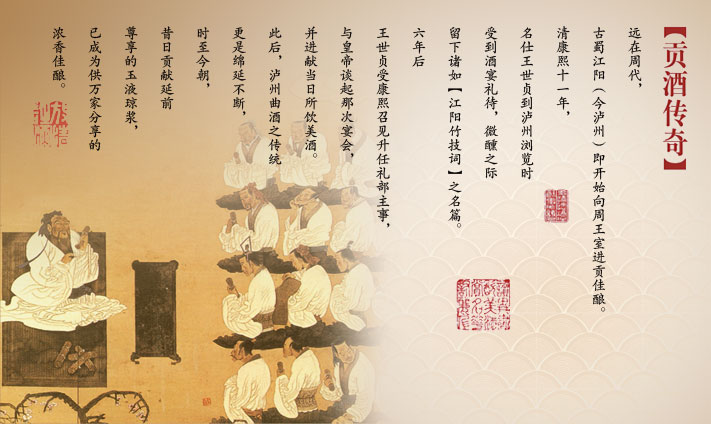 【贡酒传奇】
远在周代，
古蜀江阳（今泸州）即开始向周王室进贡佳酿。
清康熙十一年，
名仕王世贞到泸州浏览时
受到酒宴礼待，微醺之际
留下诸如【江阳竹技词】之名篇。
六年后
王世贞受康熙召见升任礼部主事，
与皇帝谈起那次宴会，
并进献当日所饮美酒。
此后，泸州曲酒之传统
更是绵延不断，
时至今朝，
昔日贡献延前
尊享的玉液琼浆，
已成为供万家分享的
浓香佳酿。